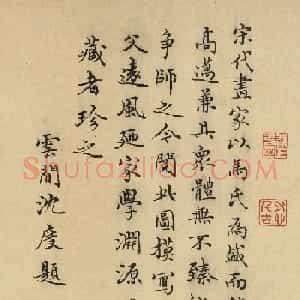 宋代畫家以馬氏為盛而
高邁兼其眾體無不臻
爭師之今閱此圖摸寫
父遠風廼家學淵源
藏者珍之
雲間沈度題
Shufaziliao.com